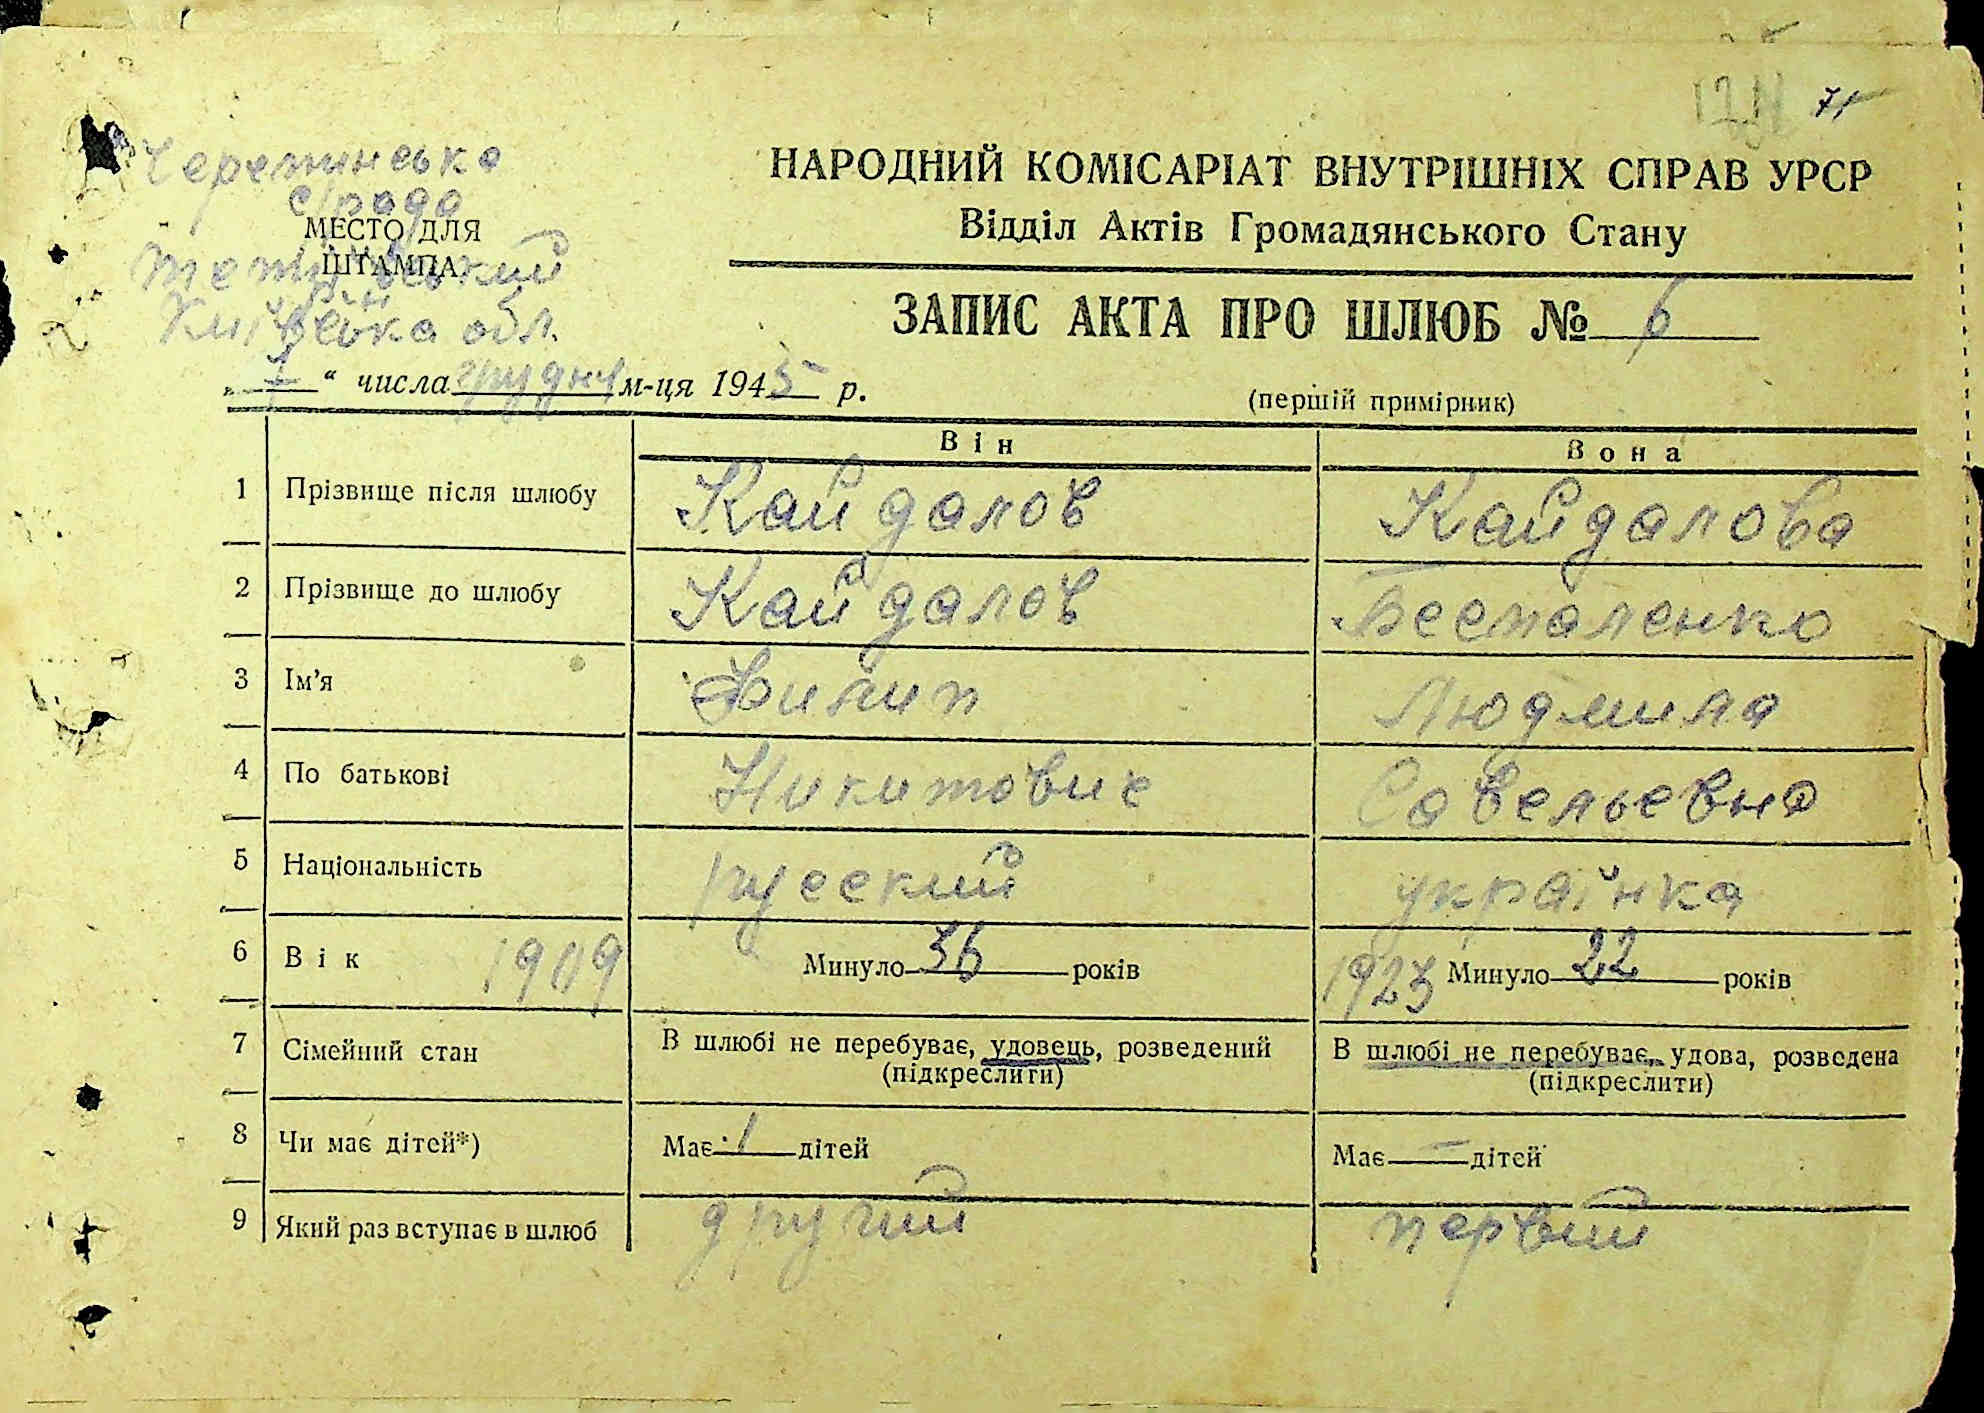 71
Черепинська
с/рада
НАРОДНИЙ КОМІСАРІАТ ВНУТРІШНІХ СПРАВ УРСР
Відділ Актів Громадянського Стану
МЕСТО ДЛЯ
ШТАМПА
Київська обл.
ЗАПИС АКТА ПРО ШЛЮБ № 6
„ 1 “ числа грудня м-ця 1945 р.
(першій примірник)
Він Вона
1 Прізвище після шлюбу Кайдалов Кайдалова
2 Прізвище до шлюбу Кайдалов Беспаленко
3 Ім’я Филип Людмила
4 По батькові Никитович Савельевна
5 Національність руський українка
6 Вік 1909 Минуло 36 років 1923 Минуло 22 років
7 Сімейний стан В шлюбі не перебуває, удовець, розведений В шлюбі не перебуває, удова, розведена
(підкреслити) (підкреслити)
8 Чи має дітей*) Має 1 дітей Має — дітей
9 Який раз вступає в шлюб другий первий